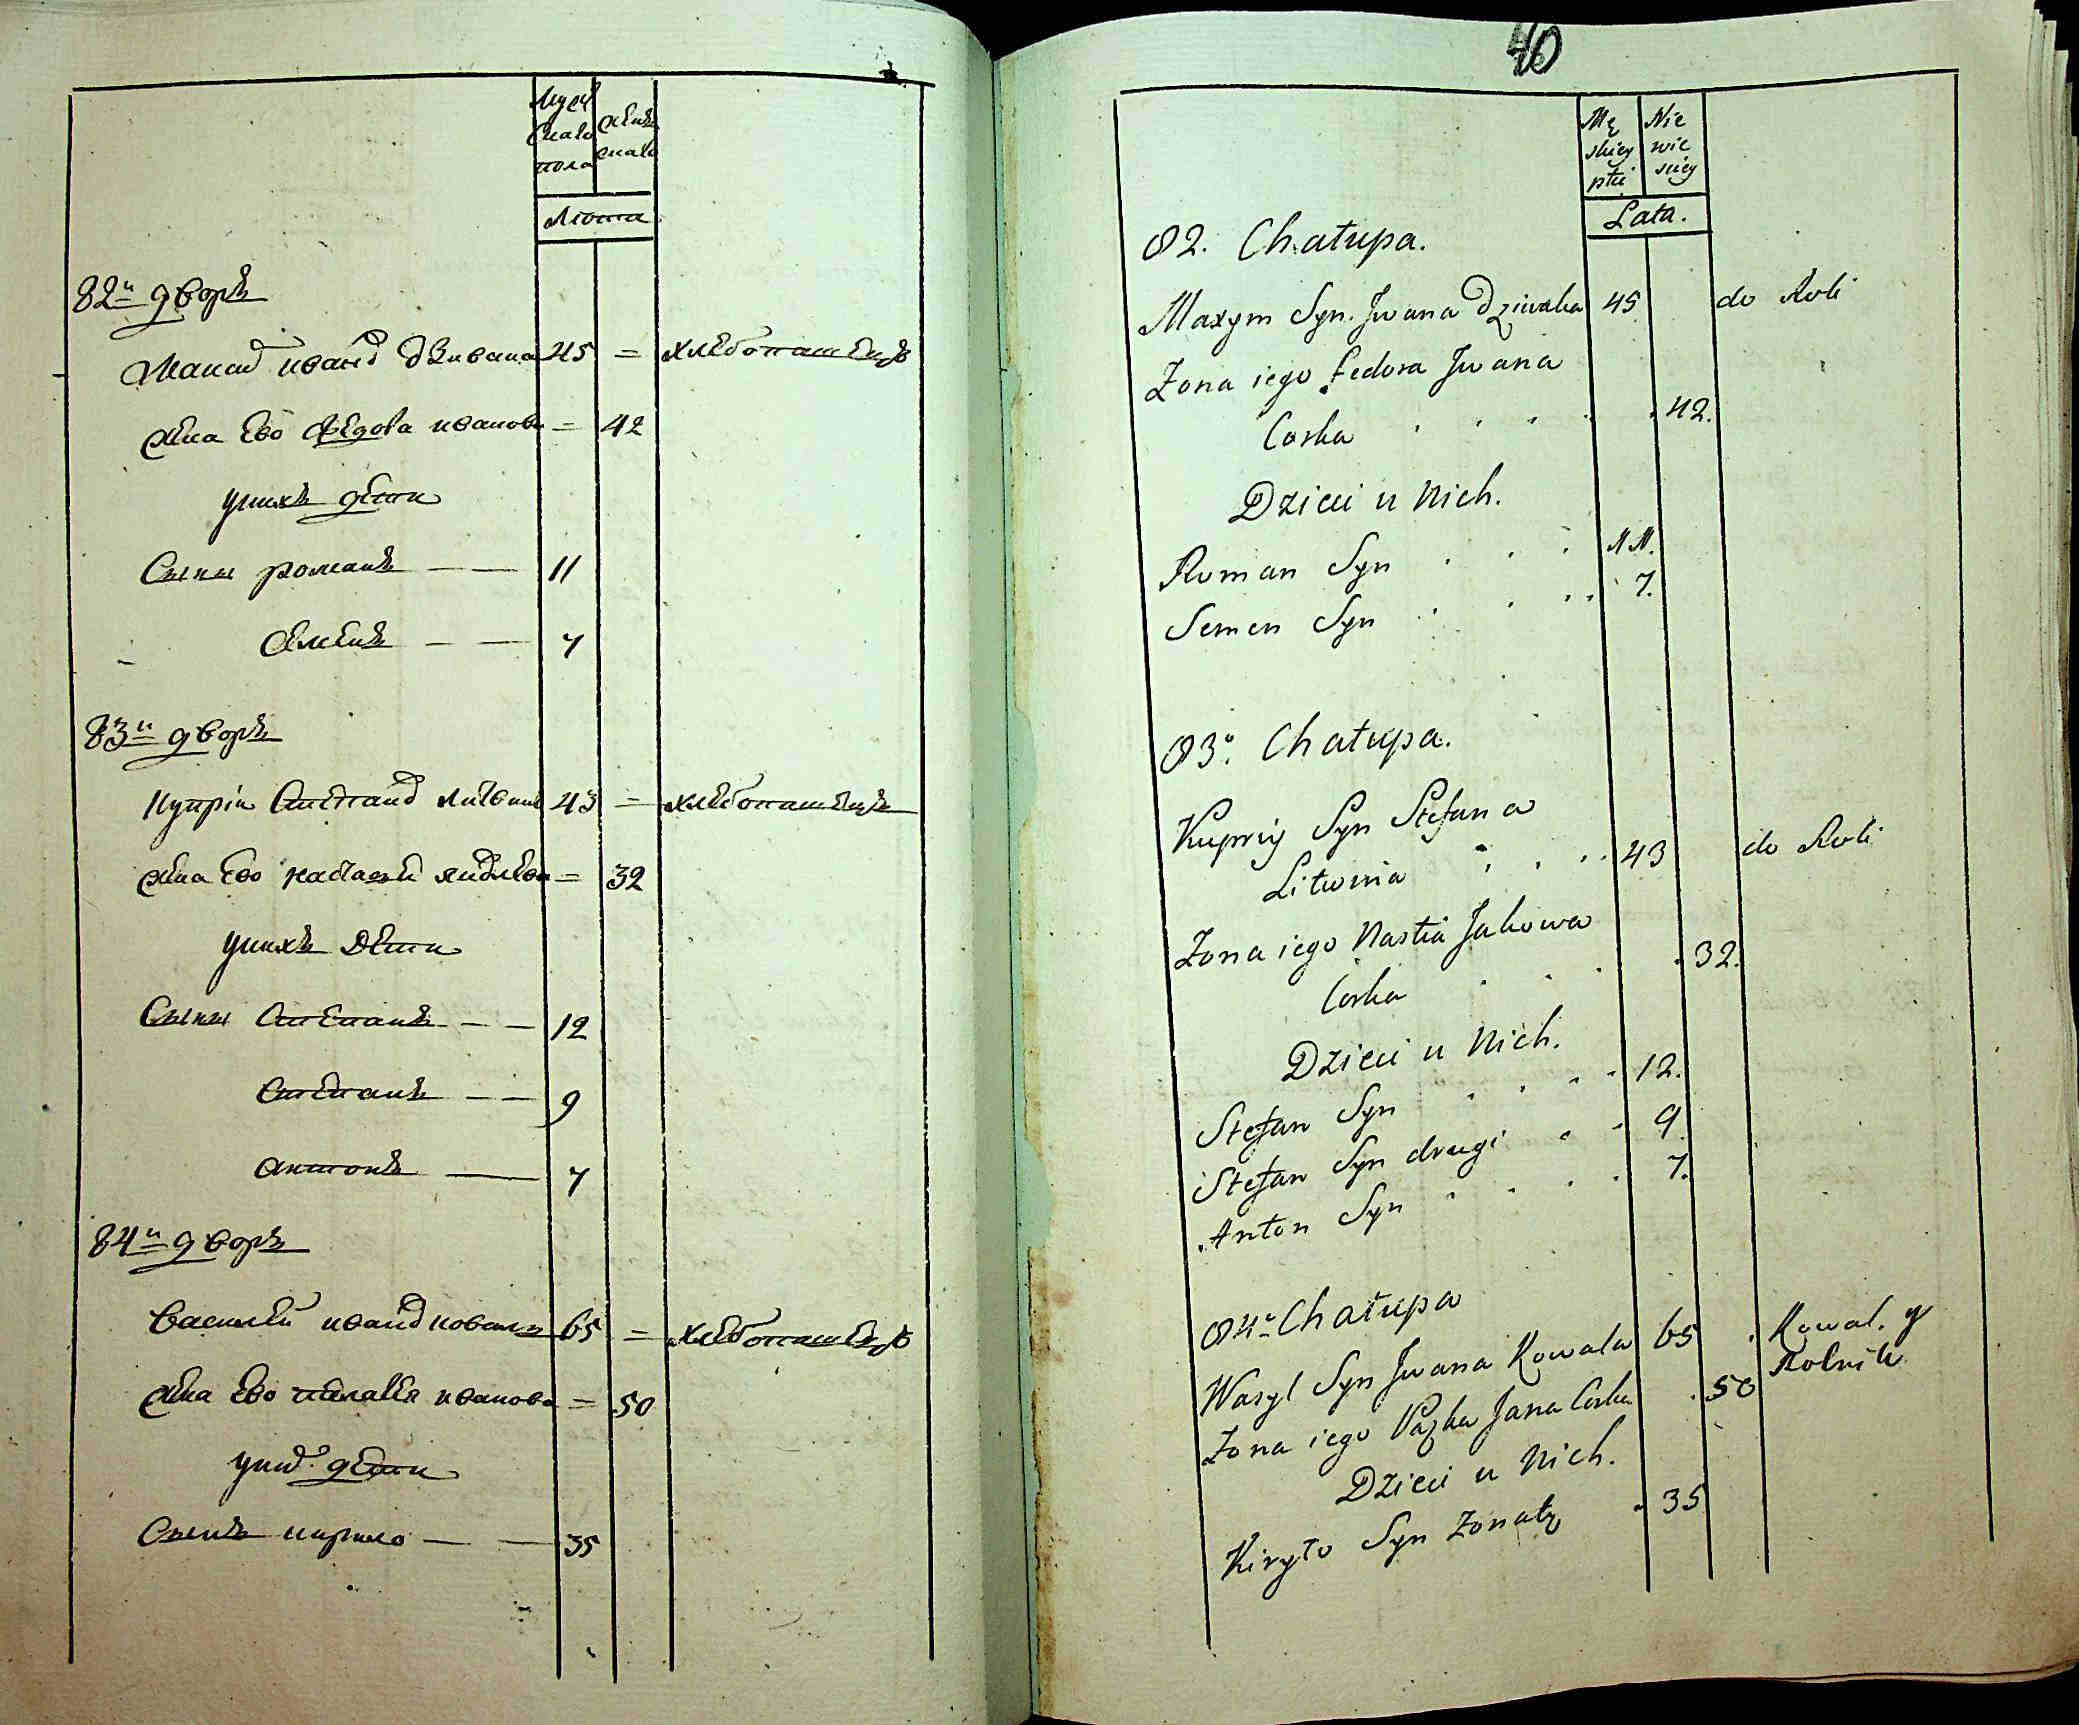 Муж
скаго
пола
женъ
скаго
Люта
82й дворъ
иванъ 45 = хлебопашецъ
жена ево федора иванова = 42
унихъ дети
Сыны романъ — — 11
— — 7
83й дворъ
Купріи Степанъ 43 = хлебопашецъ
жена ево = 32
унихъ дети
Сыны Степанъ — — 12
Степанъ — — 9
антонъ — 7
84й дворъ
Василеи иванъ коваль 65 = хлебопашецъ
жена ево иванова = 50
дети
Сынъ кирило — — 35
40
Mę
skiey
płci
Nie
wie
sciey
Lata.
82. Chałupa.
Maxym Syn Jwana Dziwaka 45 do Roli
Zona iego Fedora Jwana
Corka 42.
Dzieci u Nich.
Roman Syn 11.
Semen Syn 7.
83. Chałupa.
Kupriy Syn Stefana
Litwina 43 do Roli
Zona iego Nastia Jakowa
Corka 32.
Dzieci u Nich.
Stefan Syn 12.
Stefan Syn drugi 9.
Anton Syn 7.
84. Chałupa
Wasyl Syn Jwana Kowala 65 Kowal. y
Rolnik
Zona iego Jana Corka 50
Dzieci u Nich.
Kiryło Syn Zonaty 35